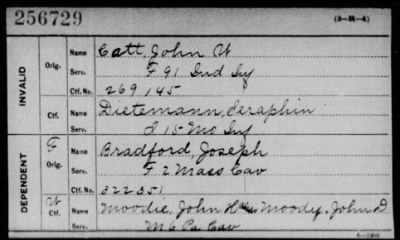 256729
(3-M-4)
INVALID
Orig.
Name Catt, John W
Serv. F 91 Ind Inf
Ctf. No. 269145
Ctf.
Name Dietemann, Seraphin
Serv. I 15 Mo Inf
DEPENDENT
Orig.
Name Bradford, Joseph
Serv. F 2 Mass Cav
Ctf. No. 322351
W
Ctf.
Name Moodie, John H Moody, John D
Serv. M 6 Pa Cav